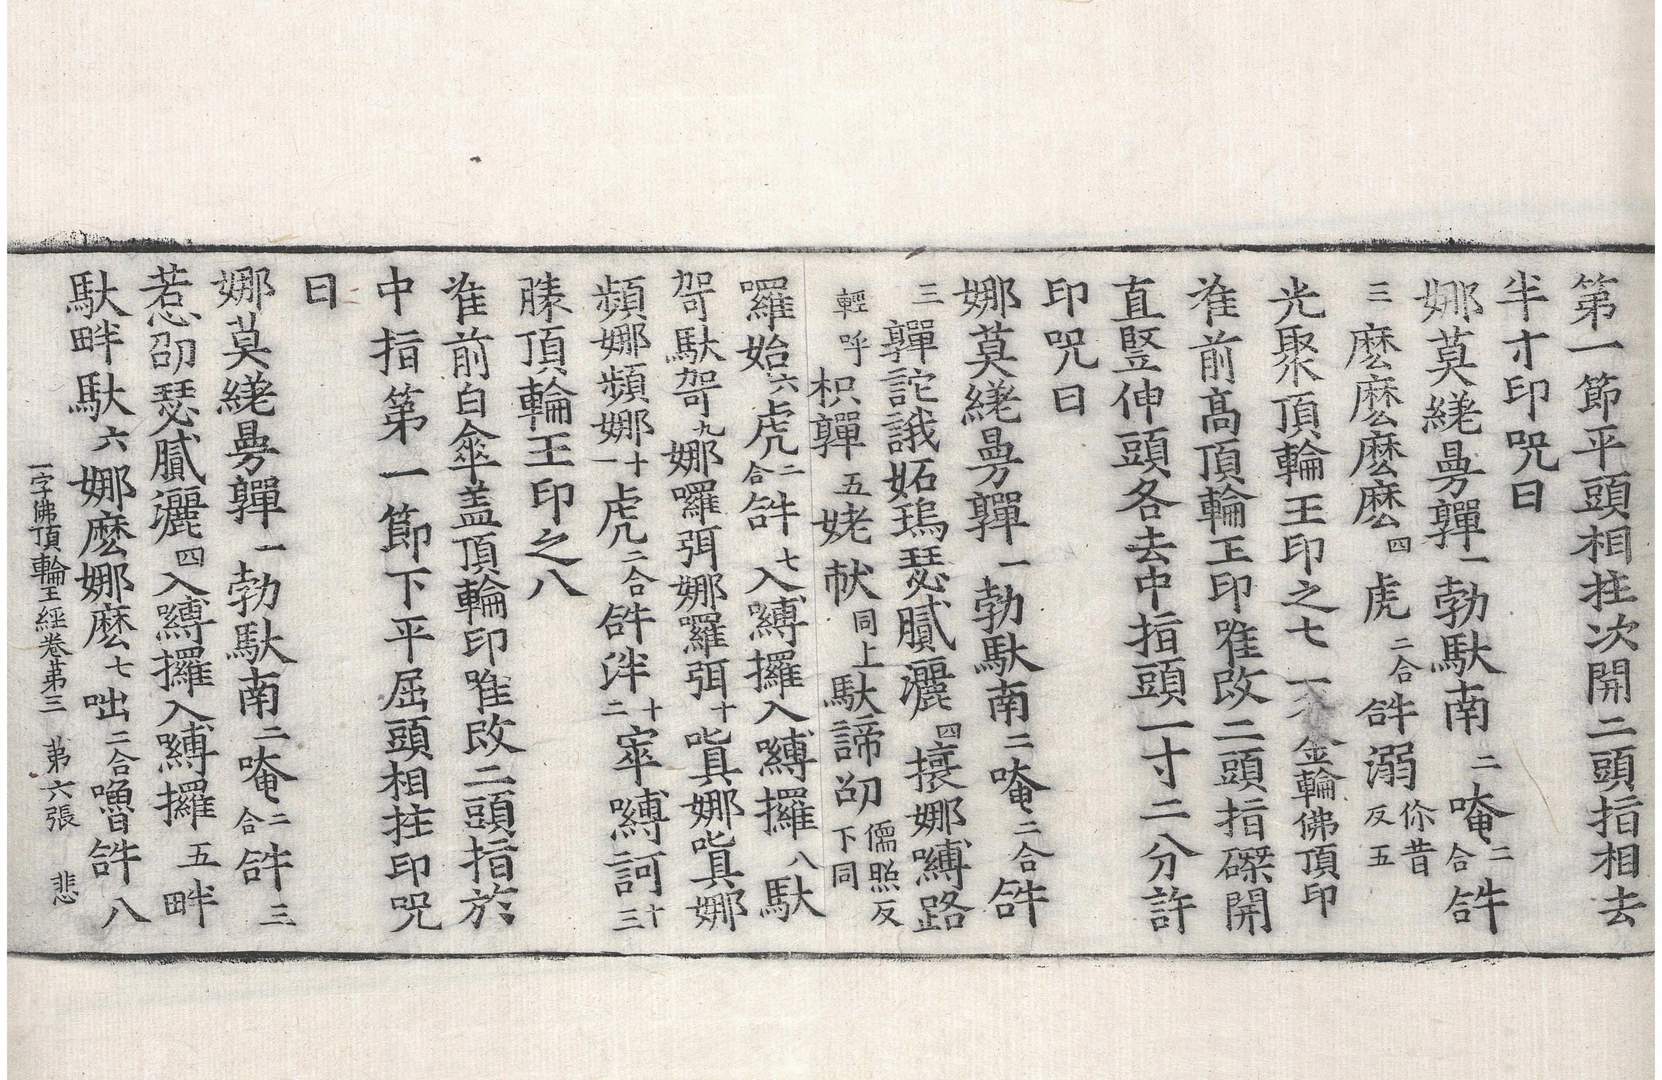 第一節平頭相拄次開二頭指相去
半寸印咒曰
娜莫繞曼亸一勃馱南二唵二合𤙖
三麼麼麼麼四虎二合𤙖溺你昔反五
光聚頂輪王印之七一本金輪佛頂印
准前高頂輪王印唯改二頭指磔開
直豎伸頭各去中指頭一寸二分許
印咒曰
娜莫繞曼亸一勃馱南二唵二合𤙖
三亸詑誐妬瑦瑟膩灑四攘娜嚩路
輕呼枳亸五姥㹤同上馱諦䂏儒照反下同
囉始六虎二合𤙖七入嚩攞入嚩攞八馱
哿馱哿九娜囉弭娜囉弭十嗔娜嗔娜
頻娜頻娜十一虎二合𤙖泮十二寧嚩訶十三
勝頂輪王印之八
准前白傘盖頂輪印唯改二頭指於
中指第一節下平屈頭相拄印咒
曰
娜莫繞曼亸一勃馱南二唵二合𤙖三
惹䂏瑟膩灑四入嚩攞入嚩攞五畔
馱畔馱六娜麼娜麼七咄二合嚕𤙖八
一字佛頂輪王經卷第三 第六張 悲